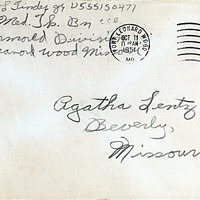 Lindey Jr US55150471
Med. Tk. Bn CCB
Division
Leonard Wood Misso
FORT LEONARD WOOD
OCT 11
AM
1954
MO.
Agatha Lentz
Beverly,
Missour